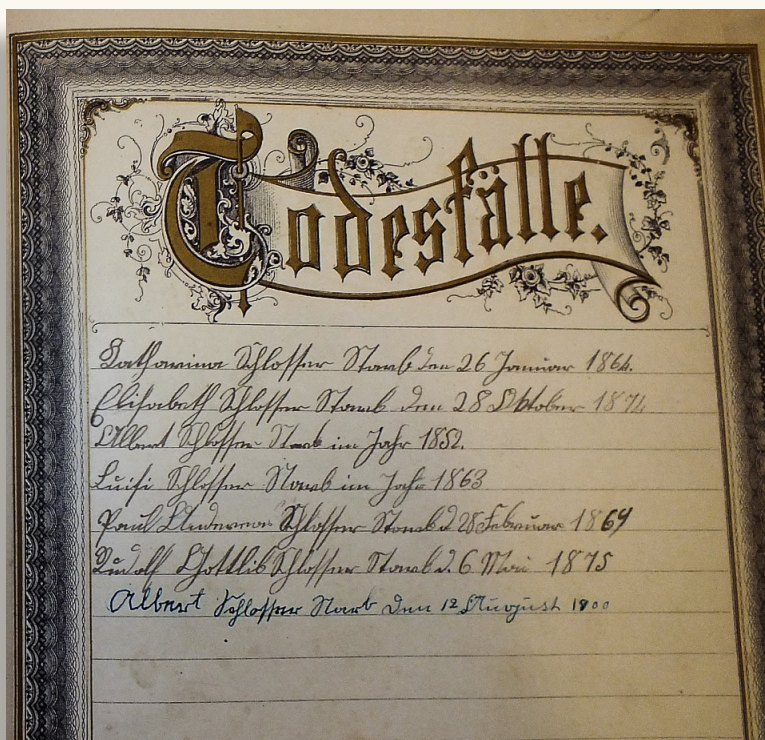 Todesfälle.
Katharina Schlosser Starb den 26 Januar 1864.
Elisabeth Schlosser Starb den 28 Oktober 1874
Albert Schlosser Starb im Jahr 1852.
Luisi Schlosser Starb im Jahr 1863
Paul Andereas Schlosser Starb d 28 Februar 1869
Rudolf Gottlib Schlosser Starb d. 6 Mai 1875
Albert Schlosser Starb den 12 August 1900